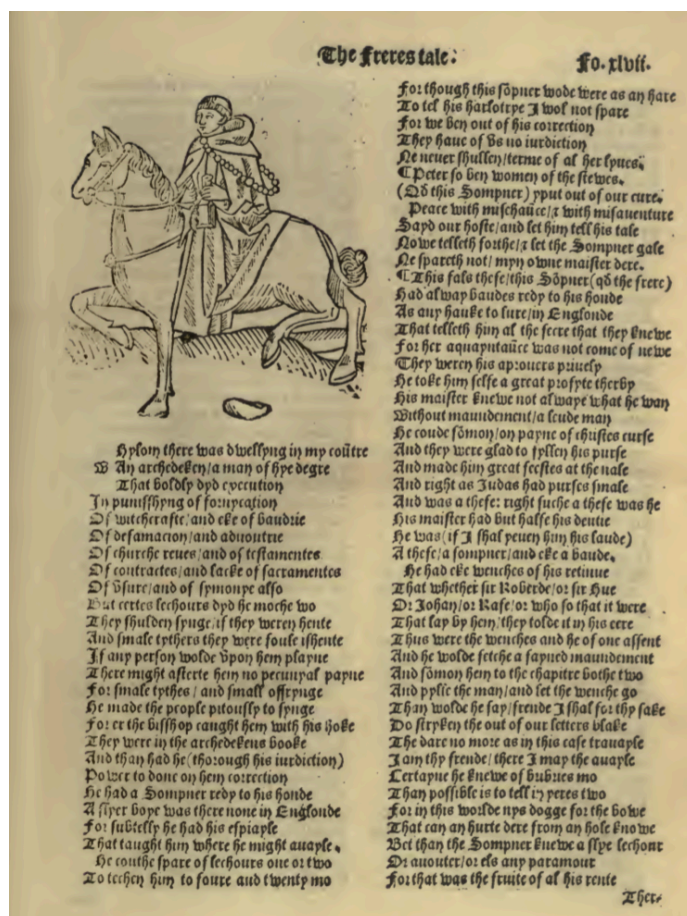 The Freres tale:
Fo. xlvii.
Hylom there was dwellyng in my coūtre
W An archedeken/a man of hye degre
That boldly dyd execution
In punisshyng of fornycation
Of witchcrafte/and eke of baudrie
Of defamacion/and aduoutrie
Of churche reues/and of testamentes
Of contractes/and lacke of sacramentes
Of vsure/and of symonye also
But certes lechours dyd he moche wo
They shulden synge/if they weren hente
And smale tythers they were foule ishente
If any person wolde vpon hem playne
There might asterte hem no pecunyal payne
For smale tythes/and small offrynge
He made the people pitously to synge
For er the bisshop caught hem with his hoke
They were in the archedekens booke
And than had he (thorough his iurdiction)
Power to done on hem correction
He had a Sompner redy to his honde
A slyer boye was there none in Englonde
For subtelly he had his espiayle
That taught him where he might auayle.
He couthe spare of lechours one or two
To techen him to foure and twenty mo
For though this sōpner wode were as an hare
To tel his harlotrye I wol not spare
For we ben out of his correction
They haue of vs no iurdiction
Ne neuer shullen/terme of al her lyues.
¶ Peter so ben women of the stewes.
(Qd this Sompner) yput out of our cure.
Peace with mischaūce/& with misauenture
Sayd our hoste/and let him tell his tale
Nowe telleth forthe/& let the Sompner gale
Ne spareth not/myn owne maister dere.
¶ This fals thefe/this Sōpner (qd the frere)
Had alway baudes redy to his honde
As any hauke to lure/in Englonde
That telleth him al the secre that they knewe
For her aquayntaūce was not come of newe
They weren his aprouers priuely
He toke him selfe a great profyte therby
His maister knewe not alwaye what he wan
Without maundement/a leude man
He coude sōmon/on payne of christes curse
And they were glad to fyllen his purse
And made him great feestes at the nale
And right as Judas had purses smale
And was a thefe: right suche a thefe was he
His maister had but halfe his deutie
He was (if I shal yeuen him his laude)
A thefe/a sompner/and eke a baude.
He had eke wenches of his retinue
That whether sir Roberde/or sir Hue
Or Johan/or Rafe/or who so that it were
That lay by hem/they tolde it in his eere
Thus were the wenches and he of one assent
And he wolde fetche a fayned maundement
And sōmon hem to the chapitre bothe two
And pylle the man/and let the wenche go
Than wolde he say/frende I shal for thy sake
Do stryken the out of our letters blake
The dare no more as in this case trauayle
I am thy frende/there I may the auayle
Certayne he knewe of bribres mo
Than possible is to tell in yeres two
For in this worlde nys dogge for the bowe
That can an hurte dere from an hole knowe
Bet than the Sompner knewe a slye lechour
Or auouter/or els any paramour
For that was the fruite of al his rente
Ther-